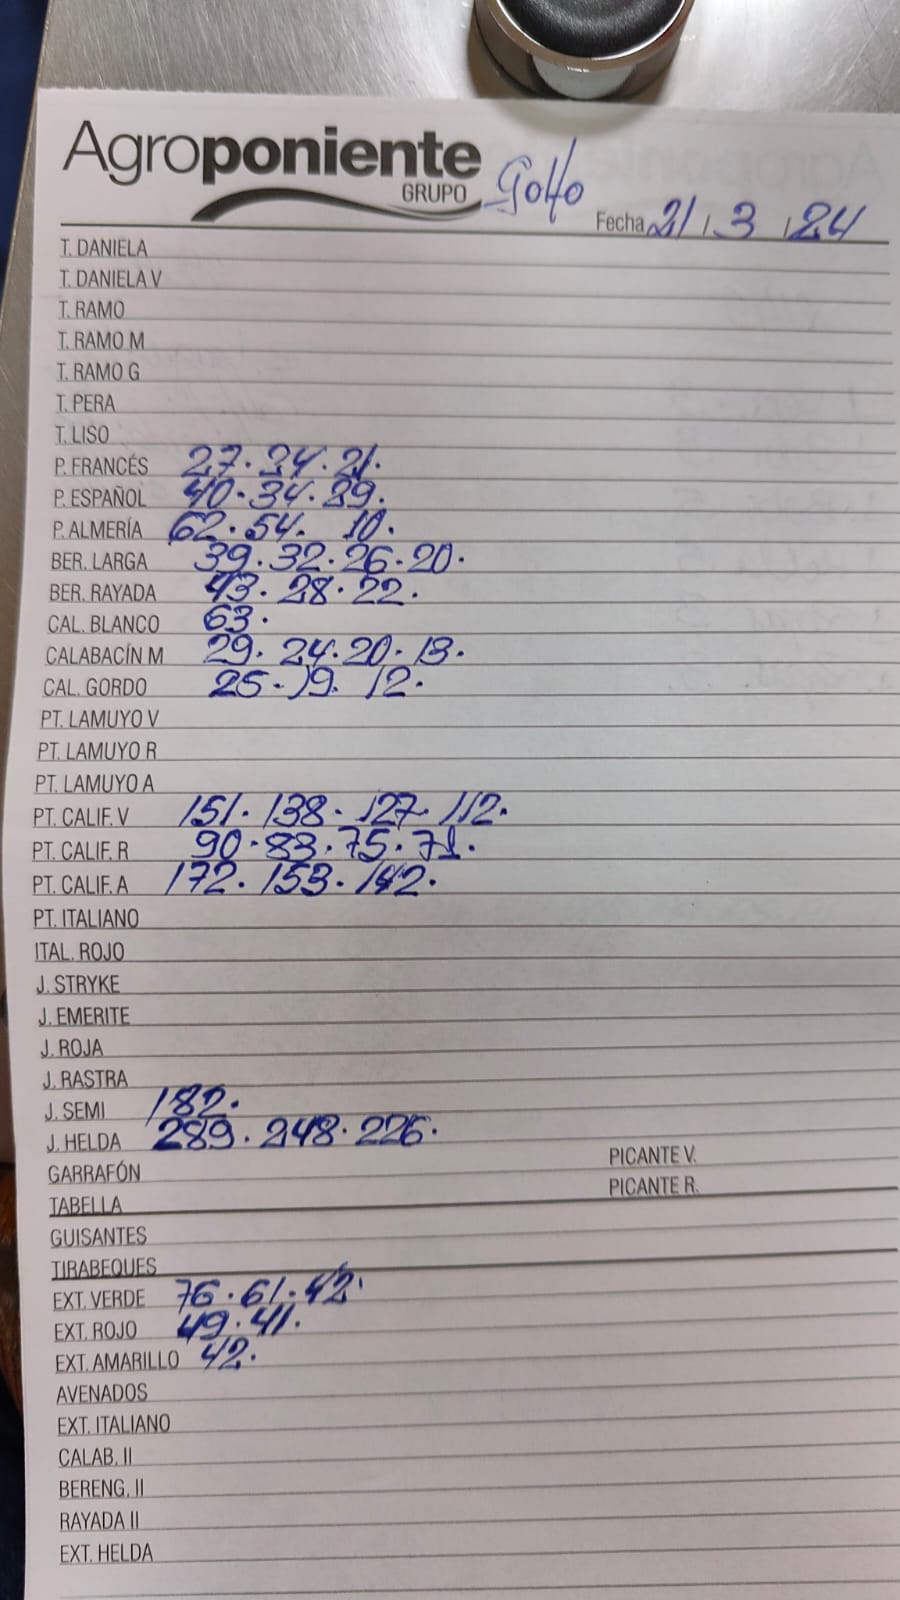 Agroponiente
GRUPO
Golfo
Fecha 21 / 3 / 24
T. DANIELA
T. DANIELA V
T. RAMO
T. RAMO M
T. RAMO G
T. PERA
T. LISO
P. FRANCÉS 27. 24. 21.
P. ESPAÑOL 40. 34. 29.
P. ALMERÍA 62. 54. 10.
BER. LARGA 39. 32. 26. 20.
BER. RAYADA 43. 28. 22.
CAL. BLANCO 63.
CALABACÍN M 29. 24. 20. 13.
CAL. GORDO 25. 19. 12.
PT. LAMUYO V
PT. LAMUYO R
PT. LAMUYO A
PT. CALIF. V 151. 138. 127. 112.
PT. CALIF. R 90. 83. 75. 71.
PT. CALIF. A 172. 153. 142.
PT. ITALIANO
ITAL. ROJO
J. STRYKE
J. EMERITE
J. ROJA
J. RASTRA
J. SEMI 182.
J. HELDA 289. 248. 226.
GARRAFÓN PICANTE V.
TABELLA PICANTE R.
GUISANTES
TIRABEQUES
EXT. VERDE 76. 61. 42.
EXT. ROJO 49. 41.
EXT. AMARILLO 42.
AVENADOS
EXT. ITALIANO
CALAB. II
BERENG. II
RAYADA II
EXT. HELDA